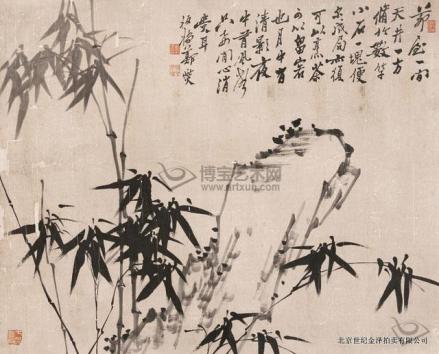 茆屋一间
天井一方
脩竹數竿
小石一塊便
尔成局亦復
可以烹茶
可以留客
也月中有
清影夜
中有風聲
只要閒心消
板橋鄭燮
博宝艺术网
www.artxun.com
北京世纪金泽拍卖有限公司